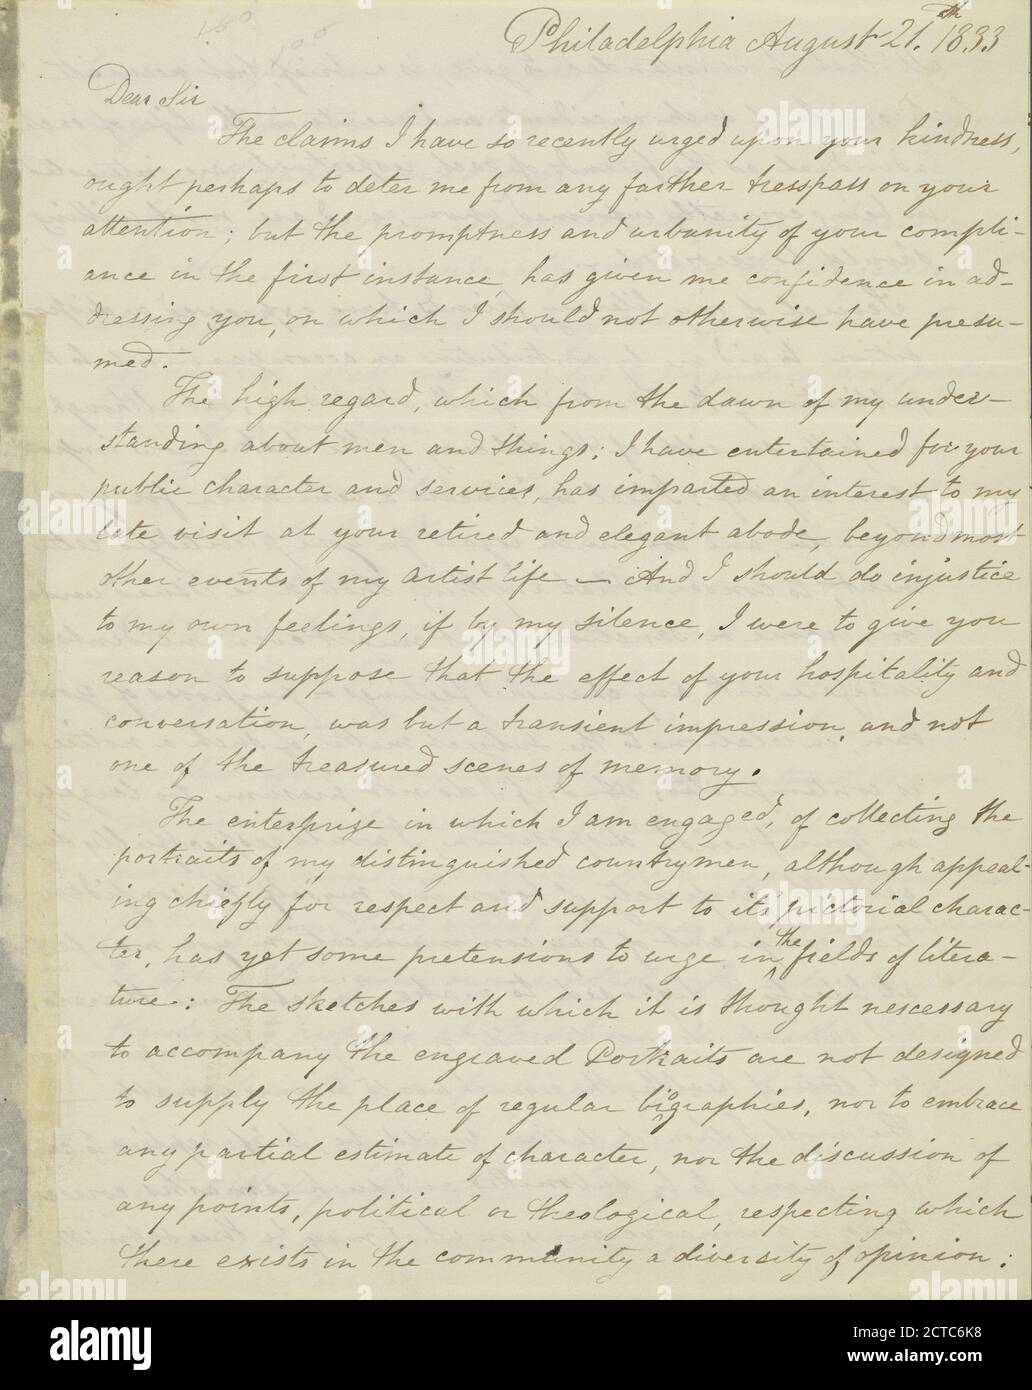 Philadelphia August 21.th 1833
Dear Sir
The claims I have so recently urged upon your kindness,
ought perhaps to deter me from any farther tresspass on your
attention; but the promptness and urbanity of your compli-
ance in the first instance, has given me confidence in ad-
dressing you, on which I should not otherwise have presu-
med.
The high regard, which from the dawn of my under-
standing about men and things; I have entertained for your
public character and services, has imparted an interest to my
late visit at your retired and elegant abode, beyond most
other events of my artist life — And I should do injustice
to my own feelings, if by my silence, I were to give you
reason to suppose that the effect of your hospitality and
conversation, was but a transient impression, and not
one of the treasured scenes of memory.
The enterprize in which I am engaged, of collecting the
portraits of my distinguished countrymen, although appeal-
ing chiefly for respect and support to its pictorial charac-
ter, has yet some pretensions to urge in the fields of litera-
ture: The sketches with which it is thought nescessary
to accompany the engraved Portraits are not designed
to supply the place of regular biographies, nor to embrace
any partial estimate of character, nor the discussion of
any points, political or theological, respecting which
there exists in the community a diversity of opinion:
alamy
Image ID: 2CTC6K8
www.alamy.com